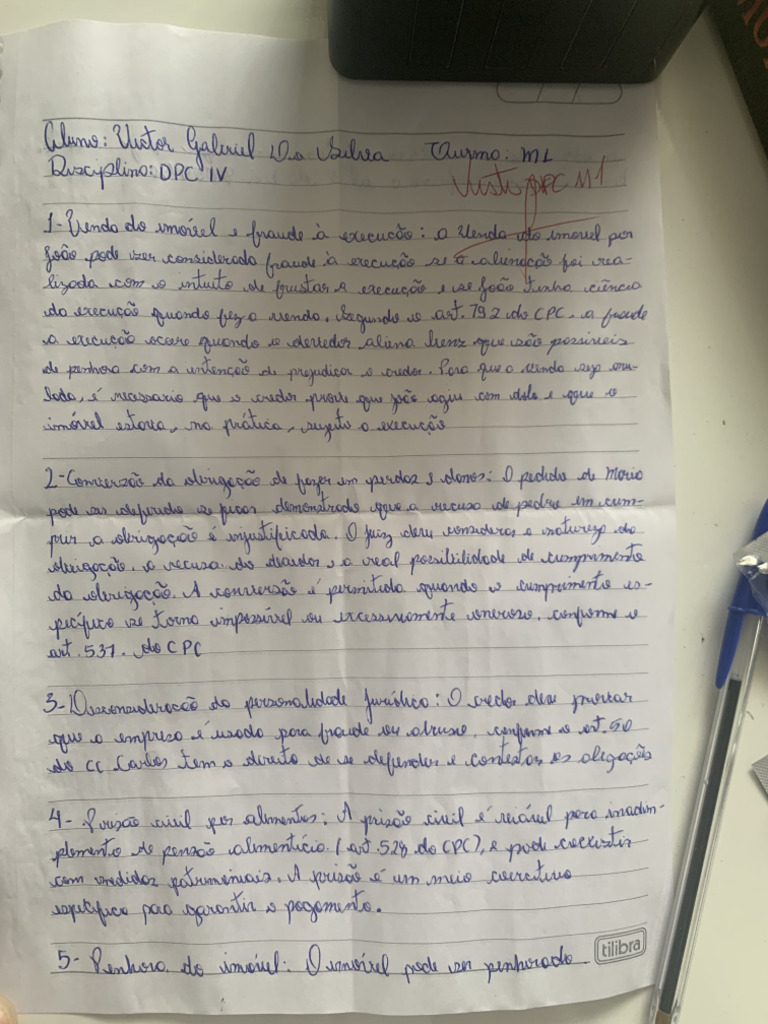 Aluno: Victor Gabriel Da Silva Turma: M1
Disciplina: DPC IV
Visto DPC M1
1- Venda do imóvel e fraude à execução: a venda do imóvel por
João pode ser considerada fraude à execução se a alienação foi rea-
lizada com o intuito de frustar a execução e se João tinha ciência
da execução quando fez a venda. Segundo o art. 792 do CPC, a fraude
a execução ocorre quando o devedor aliena bens que são possíveis
de penhora com a intenção de prejudicar o credor. Para que a venda seja anu-
lada, é necessario que o credor prove que joão agiu com dolo e que o
imóvel estava, na prática, sujeito a execução
2- Conversão da obrigação de fazer em perdas e danos: O pedido de Maria
pode ser deferido se ficar demonstrado que a recusa de pedro em cum-
prir a obrigação é injustificada. O juiz deve considerar a natureza da
obrigação, a recusa do devedor e a real possibilidade de cumprimento
da obrigação. A conversão é permitida quando o cumprimento es-
pecífico se torna impossível ou excessivamente oneroso, conforme o
art. 537. do CPC
3- Desconsideração da personalidade Jurídica: O credor deve provar
que a empresa é usada para fraude ou abuso, conforme o art. 50
do CC Carlos tem o direito de se defender e contestar as alegações
4- Prisão civil por alimentos: A prisão civil é viável para inadim-
plemento de pensão alimentícia (art. 528 do CPC), e pode coexistir
com medidas patrimoniais. A prisão é um meio coercitivo
específico para garantir o pagamento.
5- Penhora do imóvel: O imóvel pode ser penhorado
tilibra